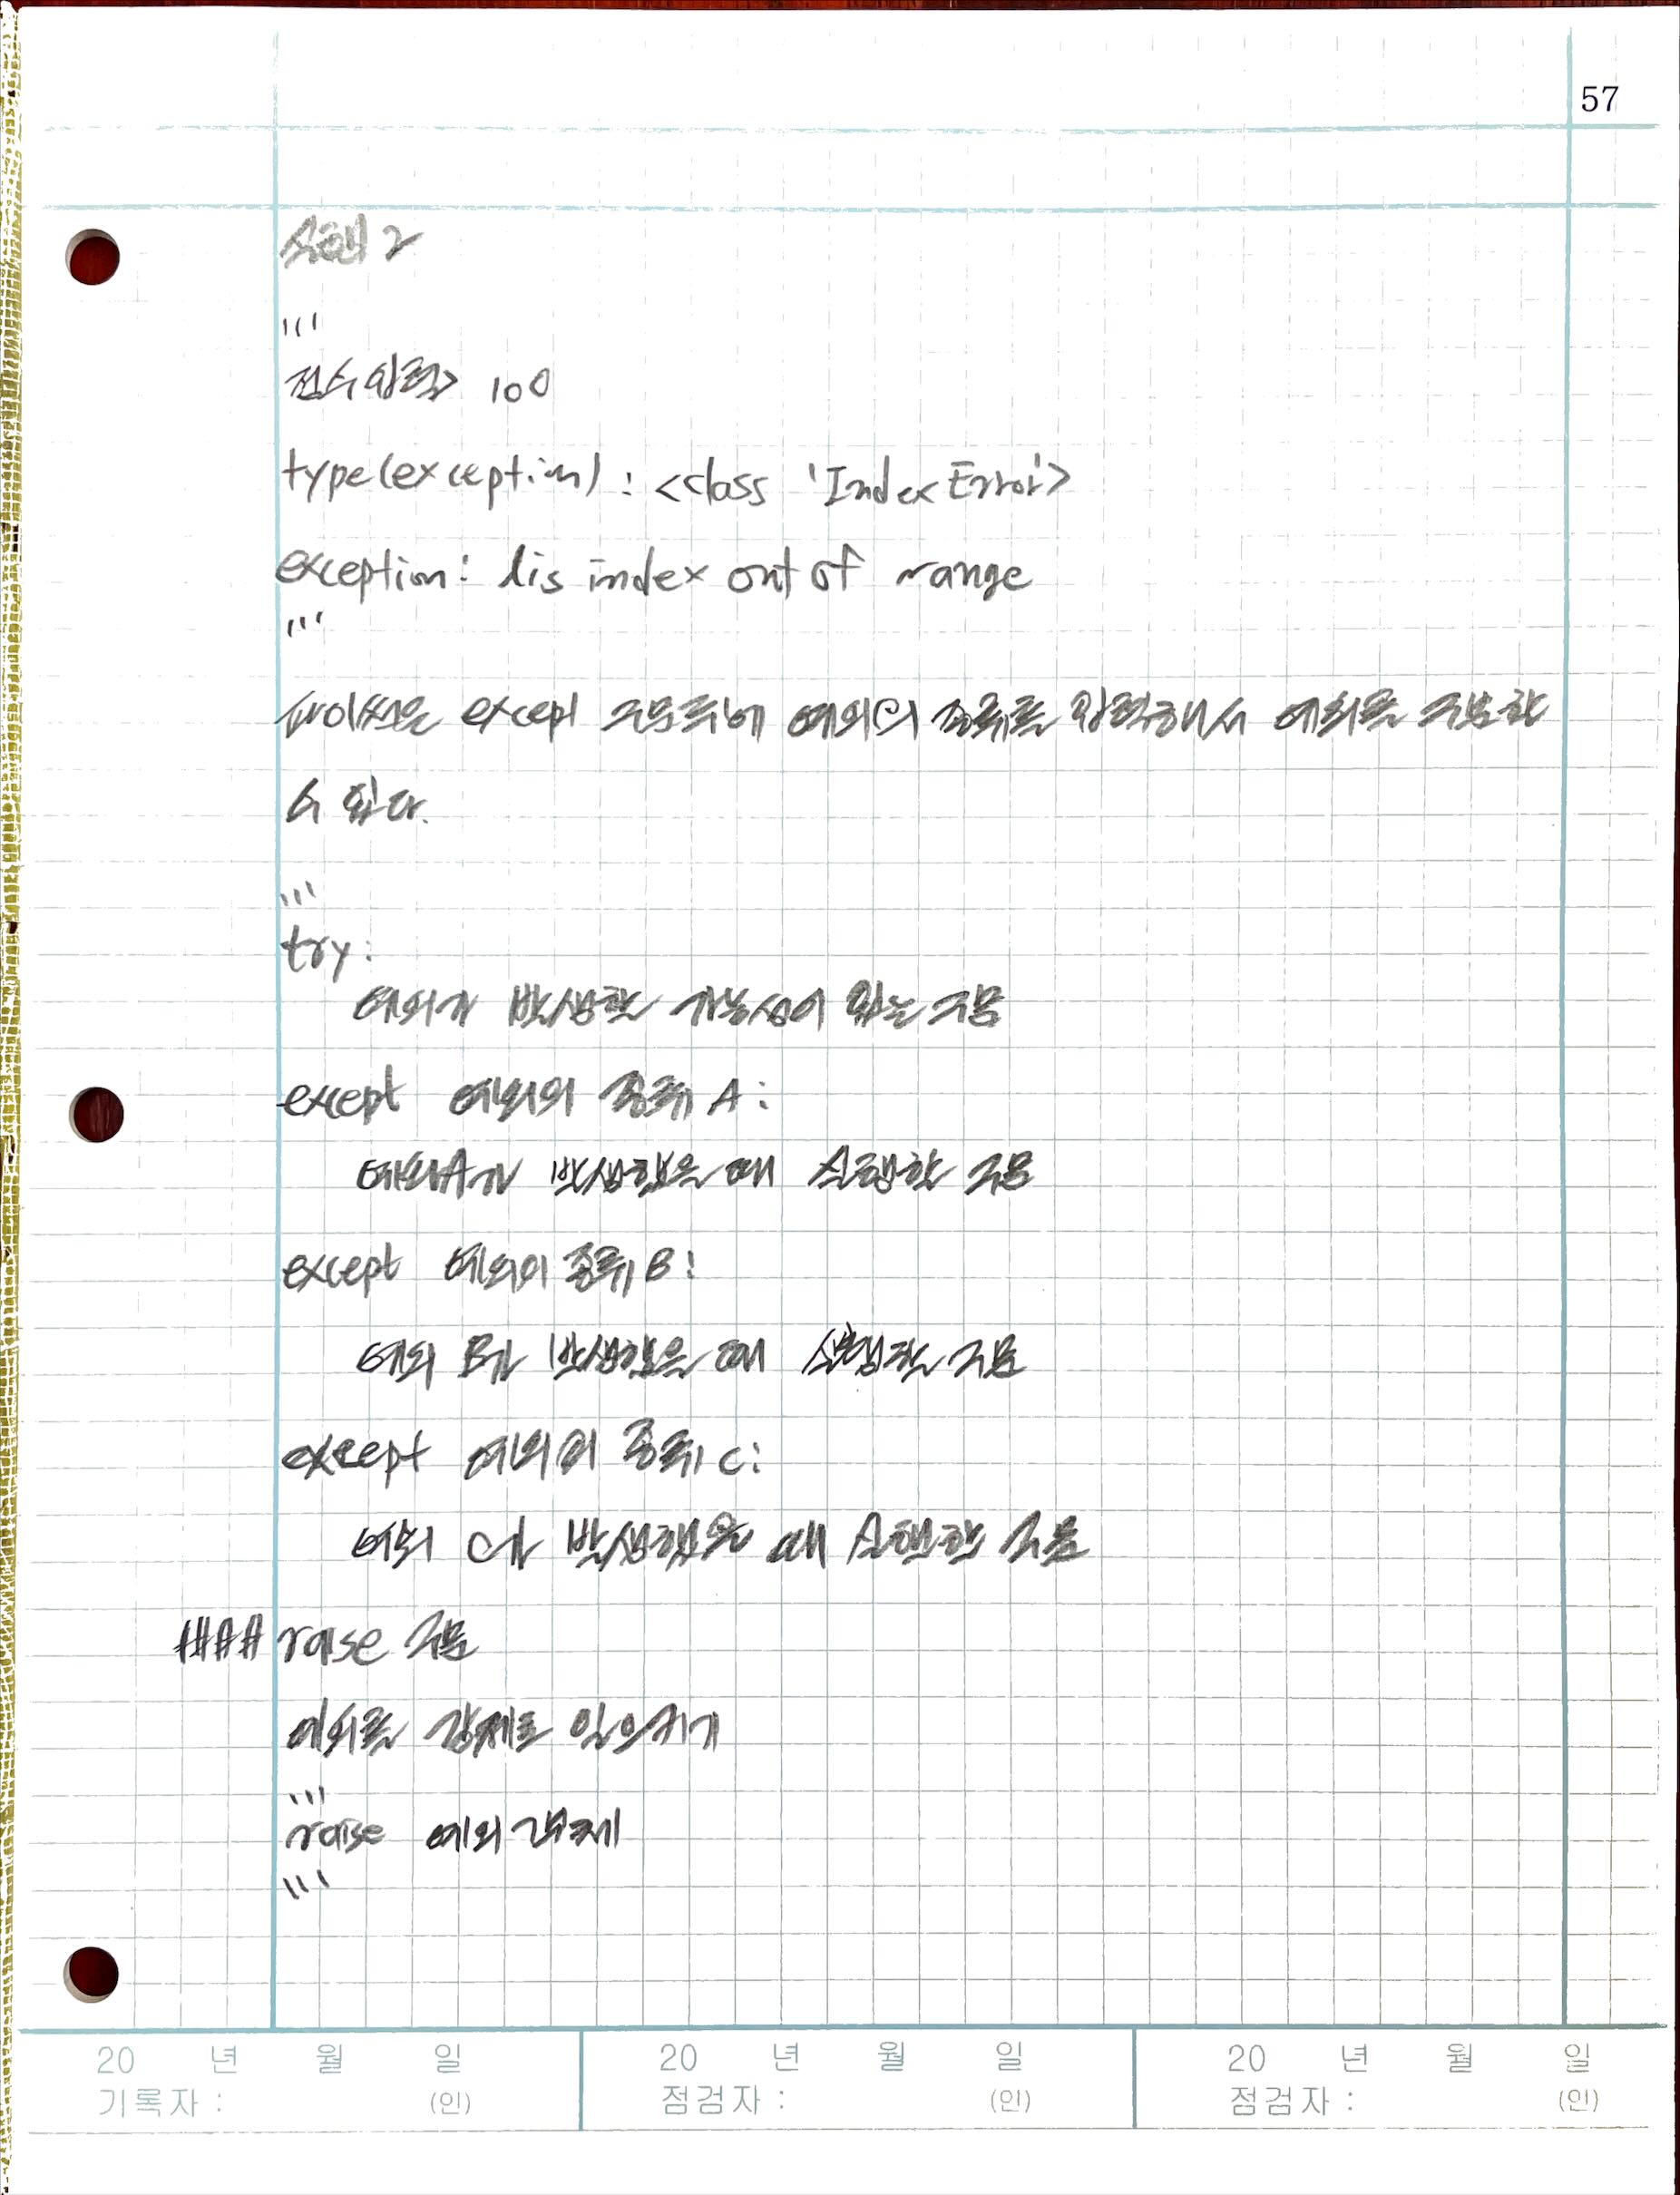 57
실행 2
'''
정수 입력> 100
type(exception) : <class 'IndexError'>
exception: lis index out of range
'''
파이썬은 except 구문 뒤에 예외의 종류를 입력해서 예외를 구분할
수 있다.
'''
try:
예외가 발생할 가능성이 있는 구문
except 예외의 종류 A:
예외A가 발생했을 때 실행할 구문
except 예외의 종류 B:
예외 B가 발생했을 때 실행할 구문
except 예외의 종류 C:
예외 C가 발생했을 때 실행할 구문
#### raise 구문
예외를 강제로 일으키기
'''
raise 예외 객체
'''
20 년 월 일 20 년 월 일 20 년 월 일
기록자 : (인) 점검자 : (인) 점검자 : (인)